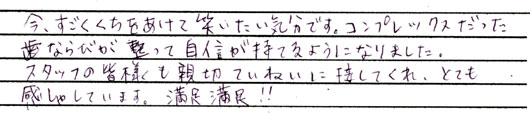 今、すごくくちをあけて笑いたい気分です。コンプレックスだった
歯ならびが整って自信が持てるようになりました。
スタッフの皆様も親切ていねいに接してくれ、とても
感しゃしています。満足満足!!